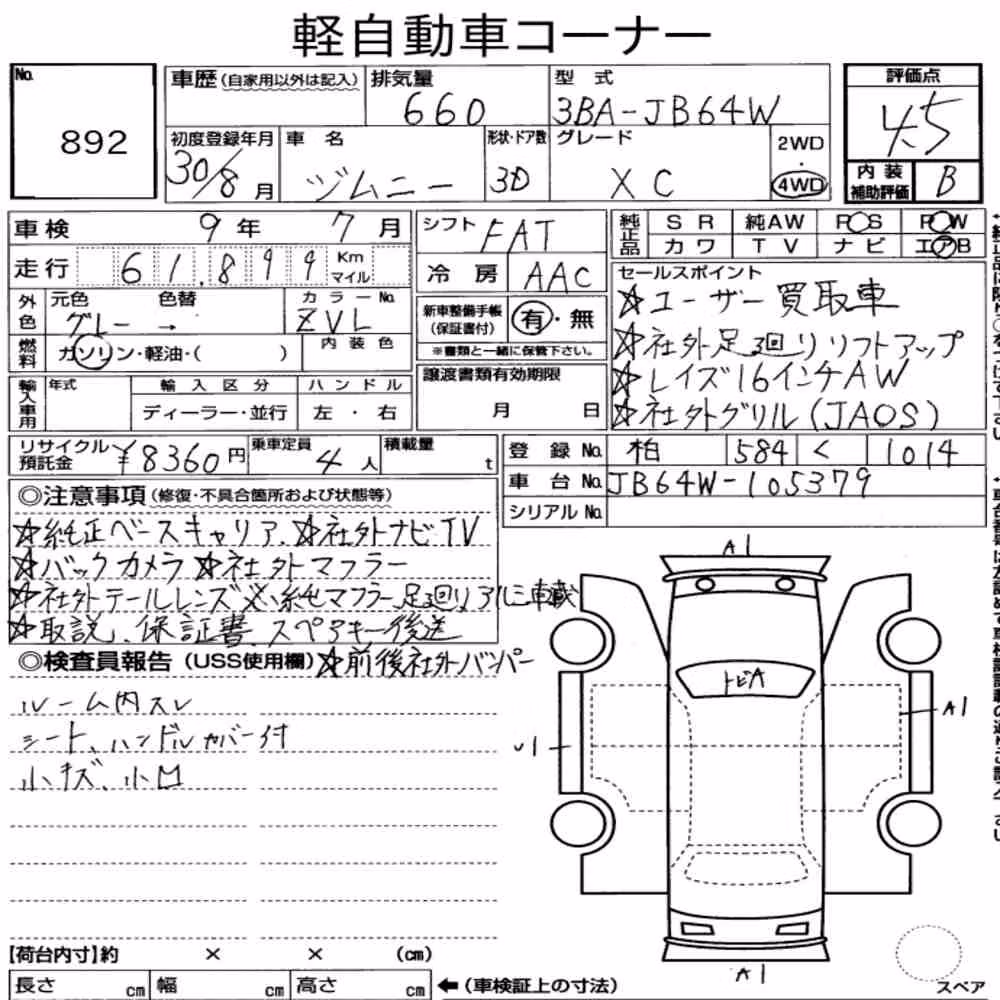 軽自動車コーナー
No. 892
車歴(自家用以外は記入) 排気量 660 型式 3BA-JB64W
評価点 4.5
初度登録年月 30/8月 車名 ジムニー 形状・ドア数 3D グレード XC 2WD・4WD
内装補助評価 B
車検 9年 7月 シフト FAT
純正品 SR 純AW PS PW
カワ TV ナビ エアB
走行 61,899 Km マイル 冷房 AAC
セールスポイント
☆ユーザー買取車
☆社外足回りリフトアップ
☆レイズ16インチAW
☆社外グリル(JAOS)
外色 元色 グレー → 色替 カラーNo. ZVL
新車整備手帳(保証書付) 有・無
※書類と一緒に保管下さい。
燃料 ガソリン・軽油・( ) 内装色
譲渡書類有効期限 月 日
輸入車用 年式 輸入区分 ハンドル
ディーラー・並行 左・右
リサイクル預託金 ¥8360円 乗車定員 4人 積載量 t
登録No. 柏 584 く 1014
車台No. JB64W-105379
シリアルNo.
◎注意事項(修復・不具合箇所および状態等)
☆純正ベースキャリア、☆社外ナビTV
☆バックカメラ ☆社外マフラー
☆社外テールレンズ ※純マフラー足回りアルミ車載
☆取説、保証書、スペアキー後送
◎検査員報告(USS使用欄) ☆前後社外バンパー
ルーム内スレ
シート、ハンドルカバー付
小キズ、小凹
A1
トビA
A1
U1
A1
【荷台内寸】約 × × (cm)
長さ cm 幅 cm 高さ cm ←(車検証上の寸法)
スペア